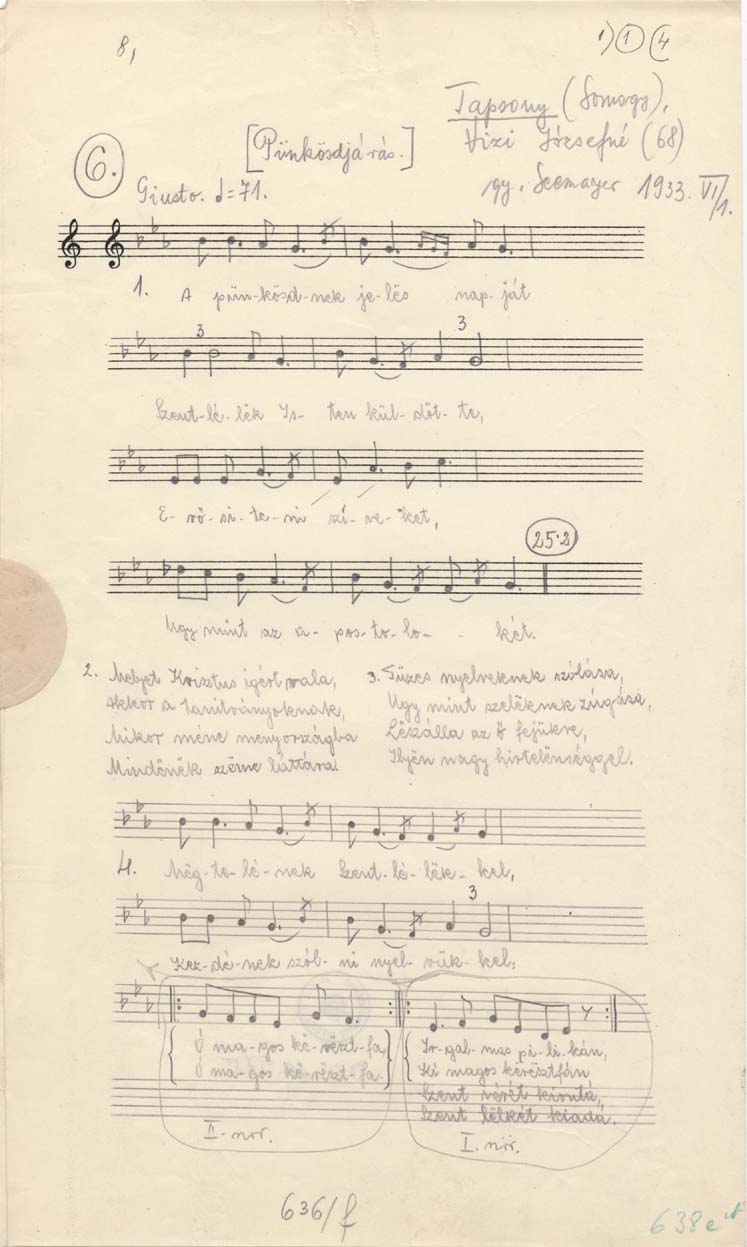 8,
1) 1 4
Tapsony (Somogy),
[Pünkösdjárás.]
Vizi Józsefné (68)
6.
Giusto. d=71.
gy. Seemayer 1933. VI/1.
1. A pün-kösd-nek je-lës nap-ját
3 3
Szent-lé-lëk Is-ten kül-döt-te,
E-rö-si-te-ni szí-ve-ket,
25.2
Ugy mint az a-pos-to-lo- - két.
2. Melyet Krisztus igért vala,
Akkor a tanitványoknak,
Mikor méne menyországba
Mindënëk szëme láttára.
3. Tüzes nyelveknek szólása,
Ugy mint szeleknek zúgása,
Lëszálla az ő fejükre,
Ilyen nagy hirtelënséggel.
4. Mëg-te-lé-nek Szent-lé-lëk-kel,
3
Kez-dé-nek szól-ni nyel-vük-kel:
Ó ma-gos kë-rëszt-fa
Ó ma-gos kë-rëszt-fa.
II. nőr.
Ir-gal-mas pi-li-kán,
Ki magos kërësztfán
Szent vérét kiontá,
Szent lëlkét kiadá.
I. nőr.
636/f
638e